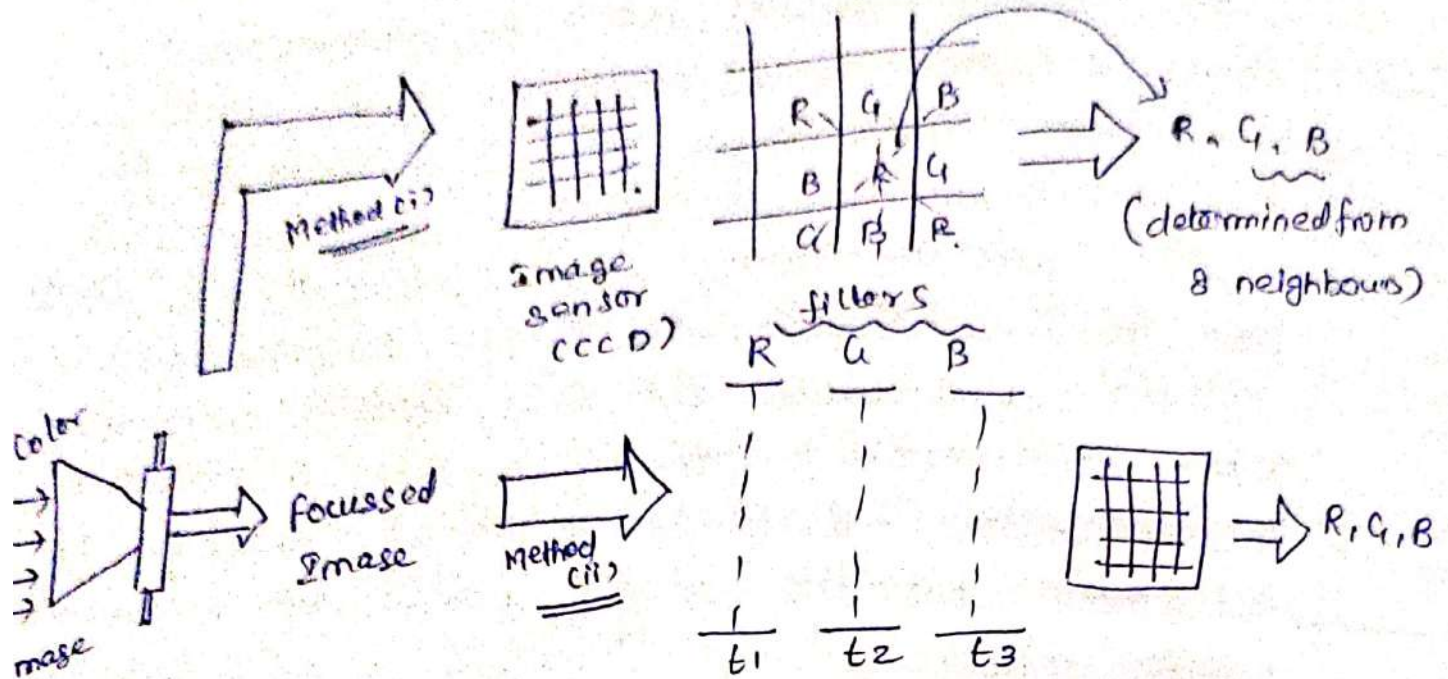 Method (i)
Image
sensor
(CCD)
R G B
B R G
G B R
R, G, B
(determined from
8 neighbours)
filters
R G B
Color
mage
focussed
Image
Method
(ii)
t1 t2 t3
R, G, B